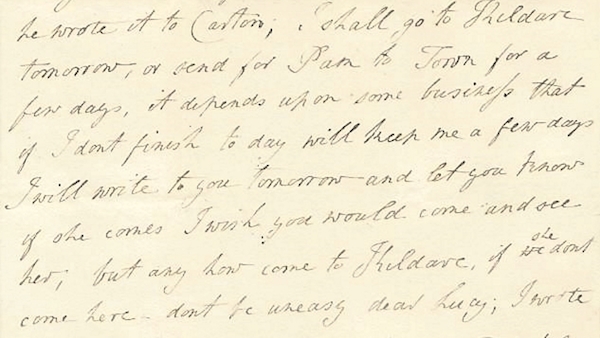 he wrote it to Carton; I shall go to Kildare
tomorrow, or send for Pam to Town for a
few days, it depends upon some business that
if I dont finish to day will keep me a few days
I will write to you tomorrow and let you know
if she comes I wish you would come and see
her; but any how come to Kildare, if she dont
come here - dont be uneasy dear Lucy; I wrote